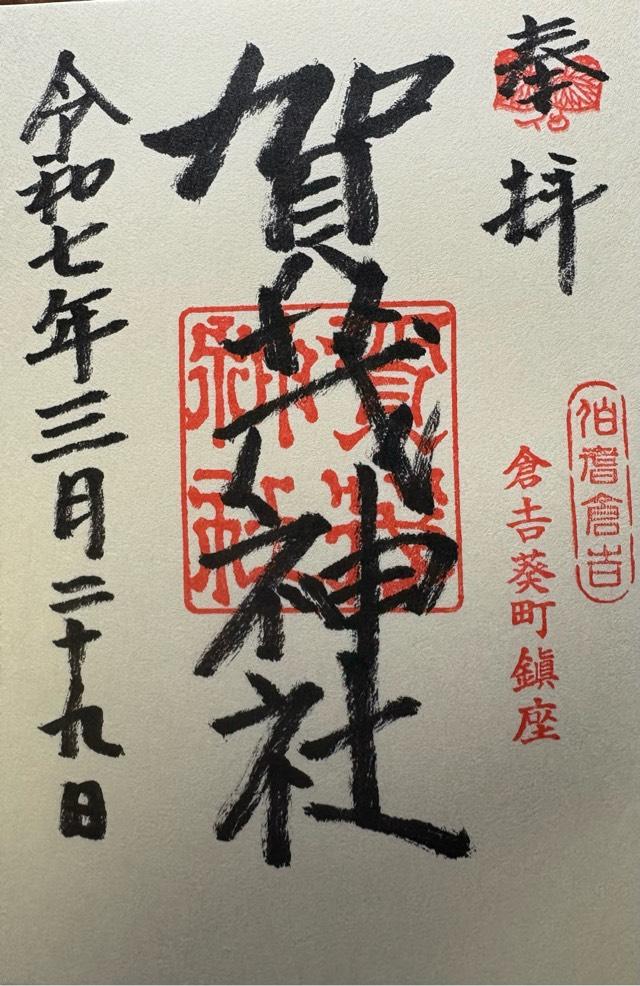 奉拝
伯耆倉吉
倉吉葵町鎮座
賀茂神社
賀茂神社
令和七年三月二十九日